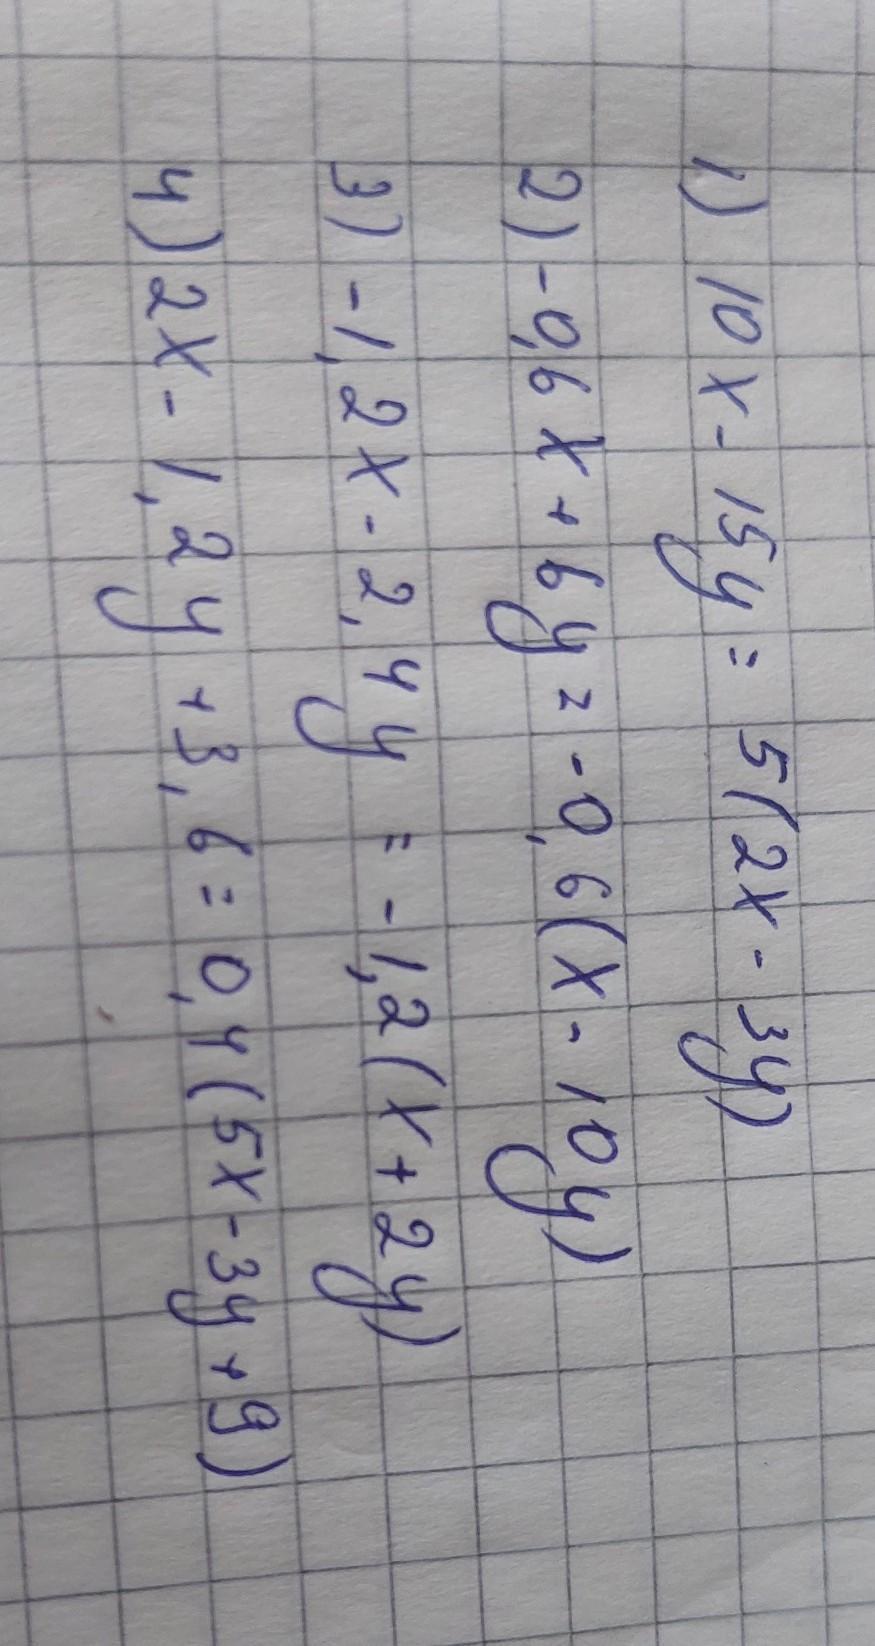 1) 10x - 15y = 5(2x - 3y)
2) -0,6x + 6y = -0,6(x - 10y)
3) -1,2x - 2,4y = -1,2(x + 2y)
4) 2x - 1,2y + 3,6 = 0,4(5x - 3y + 9)